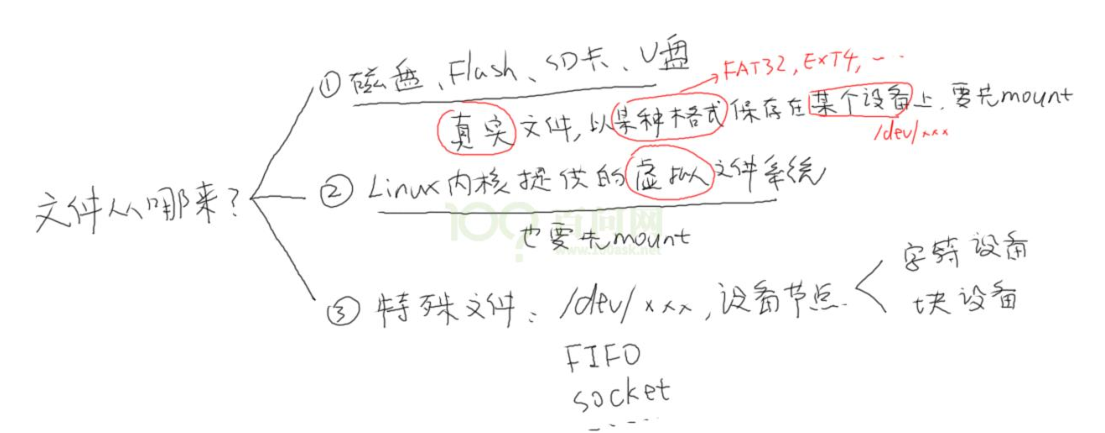 ①磁盘、Flash、SD卡、U盘
FAT32, EXT4, …
真实文件,以某种格式保存在某个设备上,要先mount
/dev/xxx
文件从哪来?
②Linux内核提供的虚拟文件系统
100ask 百问网
www.100ask.net
也要先mount
③特殊文件:/dev/xxx,设备节点
字符设备
块设备
FIFO
socket
.....